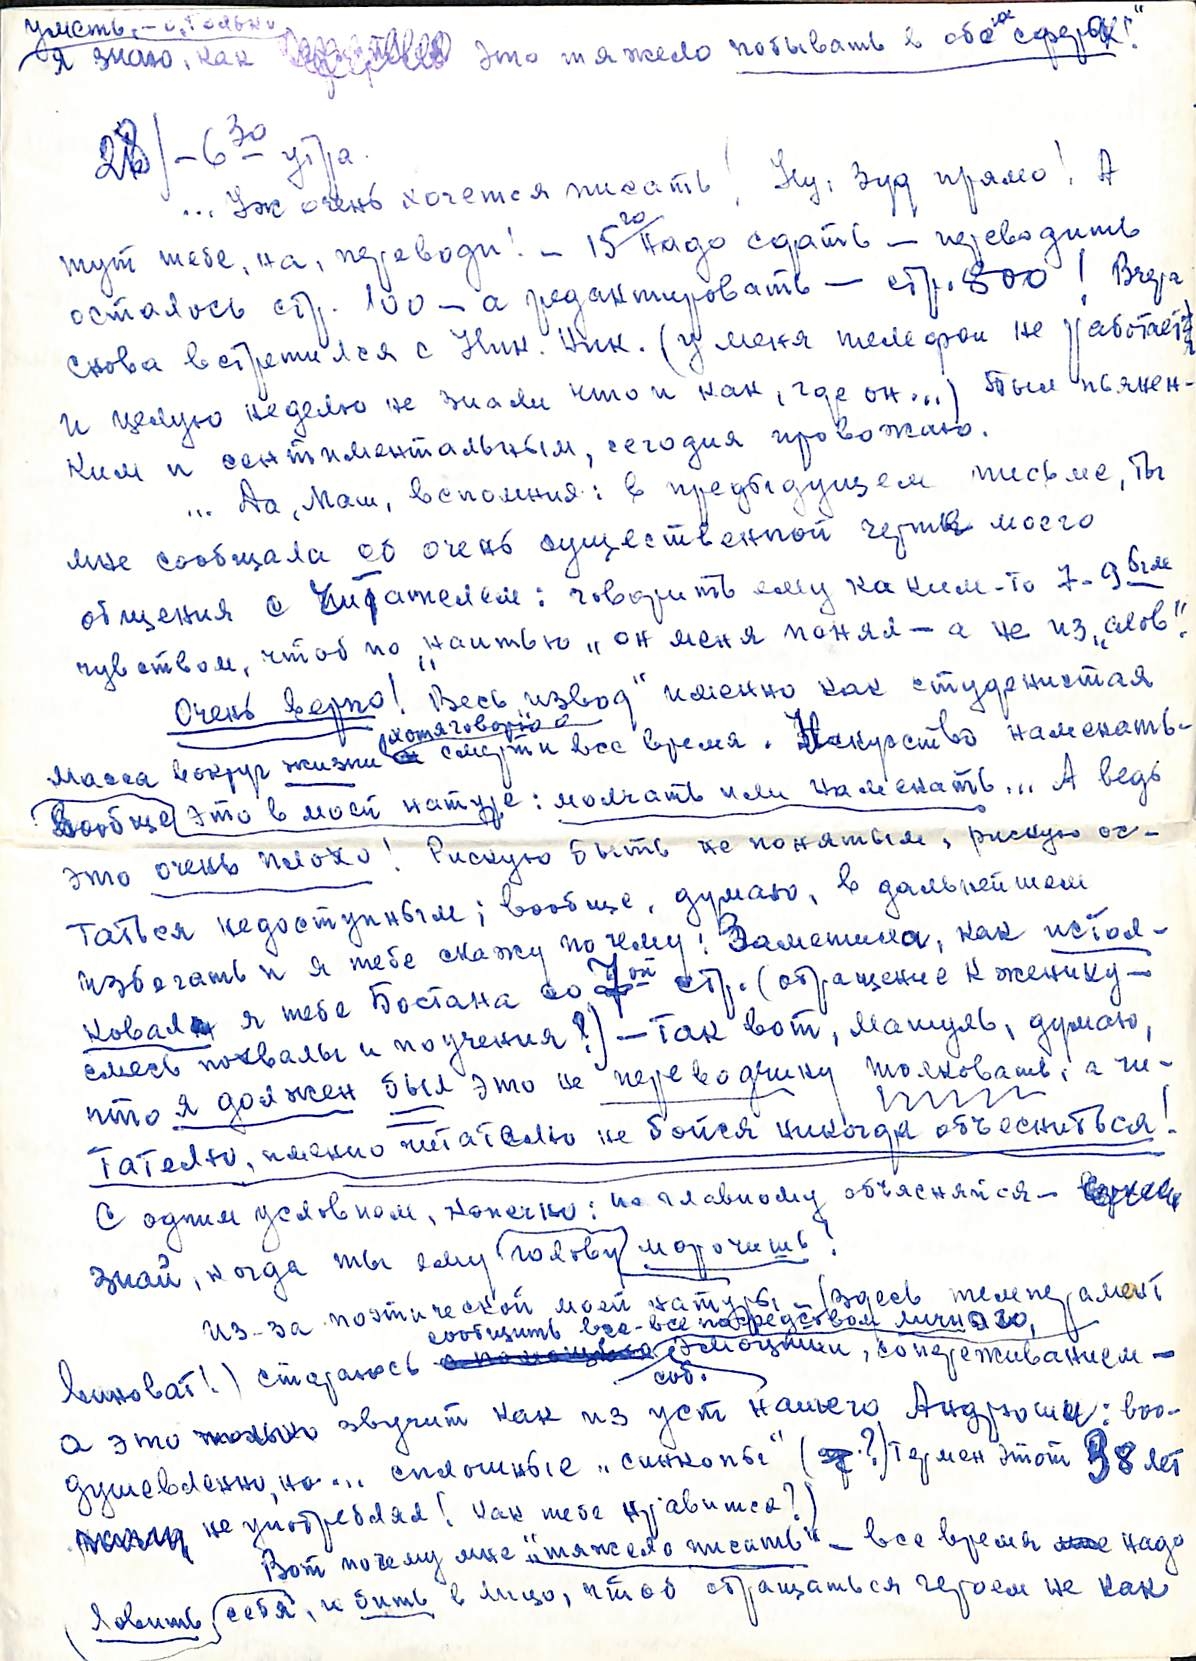 уместь, – о, только
я знаю, как это тяжело побывать в обеих сферах!"
28/ – 6 30 утра.
... Уж очень хочется писать! Ну, зуд прямо! А
тут тебе, на, переводи! – 15го надо сдать – переводить
осталось стр. 100 – а редактировать – стр. 800! Вчера
снова встретился с Ник. Ник. (у меня телефон не работает
и целую неделю не знали что и как, где он...) Был пьянень-
ким и сентиментальным, сегодня провожаю.
... Да, Маш, вспомнил: в предыдущем письме, ты
мне сообщала об очень существенной черте моего
общения с Читателем: говорить ему каким-то 7-9бым
чувством, чтоб по „наитью„ он меня понял – а не из „слов".
Очень верно! Весь „извод" именно как студенистая
масса вокруг жизни хотя говорю о смерти все время. Искусство намекать –
Вообще это в моей натуре: молчать или намекать... А ведь
это очень плохо! Рискую быть не понятым, рискую ос-
таться недоступным; вообще, думаю, в дальнейшем
избегать и я тебе скажу почему: Заметила, как истол-
ковал я тебе Бостана со 7ой стр. (обращение к женику –
смесь похвалы и поучения?) – Так вот, Машуль, думаю,
что я должен был это не переводчику толковать, а чи-
тателю, именно читателю не бойся никогда объесниться!
С одним условием, конечно: по главному объясняйся –
знай, когда ты ему голову морочишь!
Из-за поэтической моей натуры – (здесь темперамент
сообщить все-все посредством личного,
виноват!) стараюсь эмоциями, сопереживанием –
соб.
а это звучит как из уст нашего Андрюши: воо-
душевленно, но... сплошные „синкопы" (?) Термен этот 38 лет
не употреблял! Как тебе нравится?)
Вот почему мне „тяжело писать" – все время надо
ловить себя, и бить в лицо, чтоб обращаться героем не как